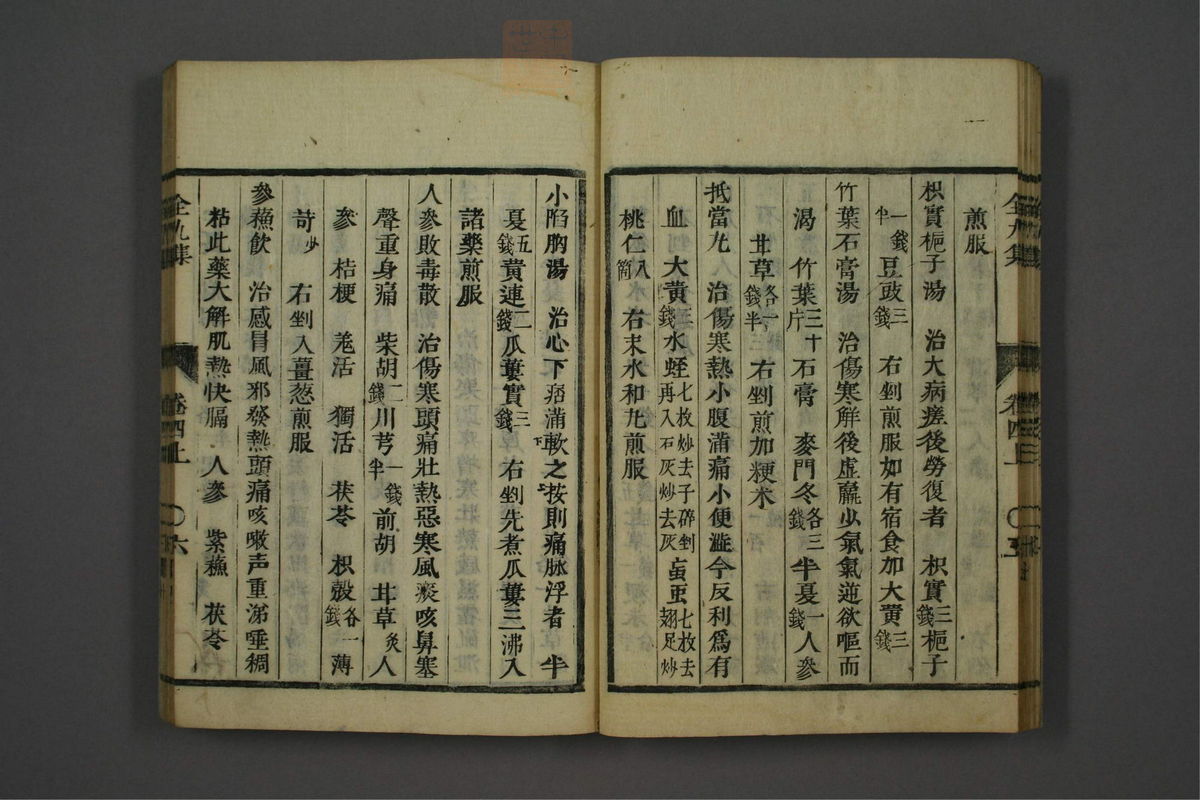 煎服
枳實梔子湯　治大病瘥後勞復者　枳實三錢梔子
一錢半　豆豉三錢　右剉煎服如有宿食加大黃三錢
竹葉石膏湯　治傷寒解後虛羸少氣氣逆欲嘔而
渴　竹葉三十片　石膏　麥門冬各三錢　半夏一錢　人參
甘草各一錢半　右剉煎加粳米
抵當九　治傷寒熱小腹滿痛小便澁今反利爲有
血　大黃三錢　水蛭七枚炒去子碎剉再入石灰炒去灰　䖟虫七枚去翅足炒
桃仁八箇　右末水和九煎服
全九集　卷四上
小陷胸湯　治心下痞滿軟下之按則痛脉浮者　半
夏五錢　黃連二錢　瓜蔞實三錢　右剉先煮瓜蔞三沸入
諸藥煎服
人參敗毒散　治傷寒頭痛壯熱惡寒風痰咳鼻塞
聲重身痛　柴胡二錢　川芎一錢半　前胡　甘草炙　人
參　桔梗　羗活　獨活　茯苓　枳殼各一錢　薄
苛少　右剉入薑葱煎服
參蘓飲　治感冒風邪發熱頭痛咳嗽声重涕唾稠
粘此藥大解肌熱快膈　人參　紫蘓　茯苓
全九集　卷四上　六